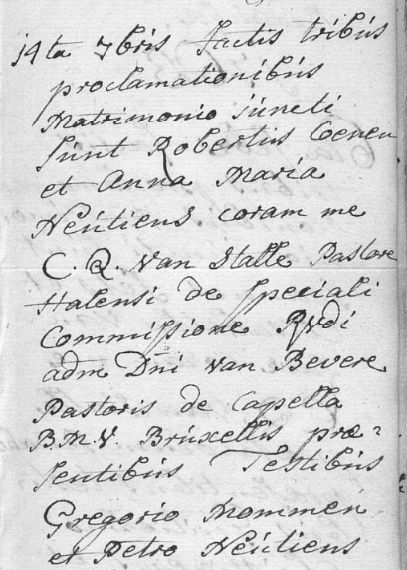 14ta 7bris factis tribus
proclamationibus
Matrimonio juncti
sunt Robertus Coenen
et Anna Maria
Neutiens. coram me
C. Q. Van Stalle Pastore
Halensi de speciali
Commissione Rvdi
adm Dni van Bevere
Pastoris de Capella
B.M.V. Bruxellis præ=
sentibus Testibus
Gregorio Mommen
et Petro Neutiens